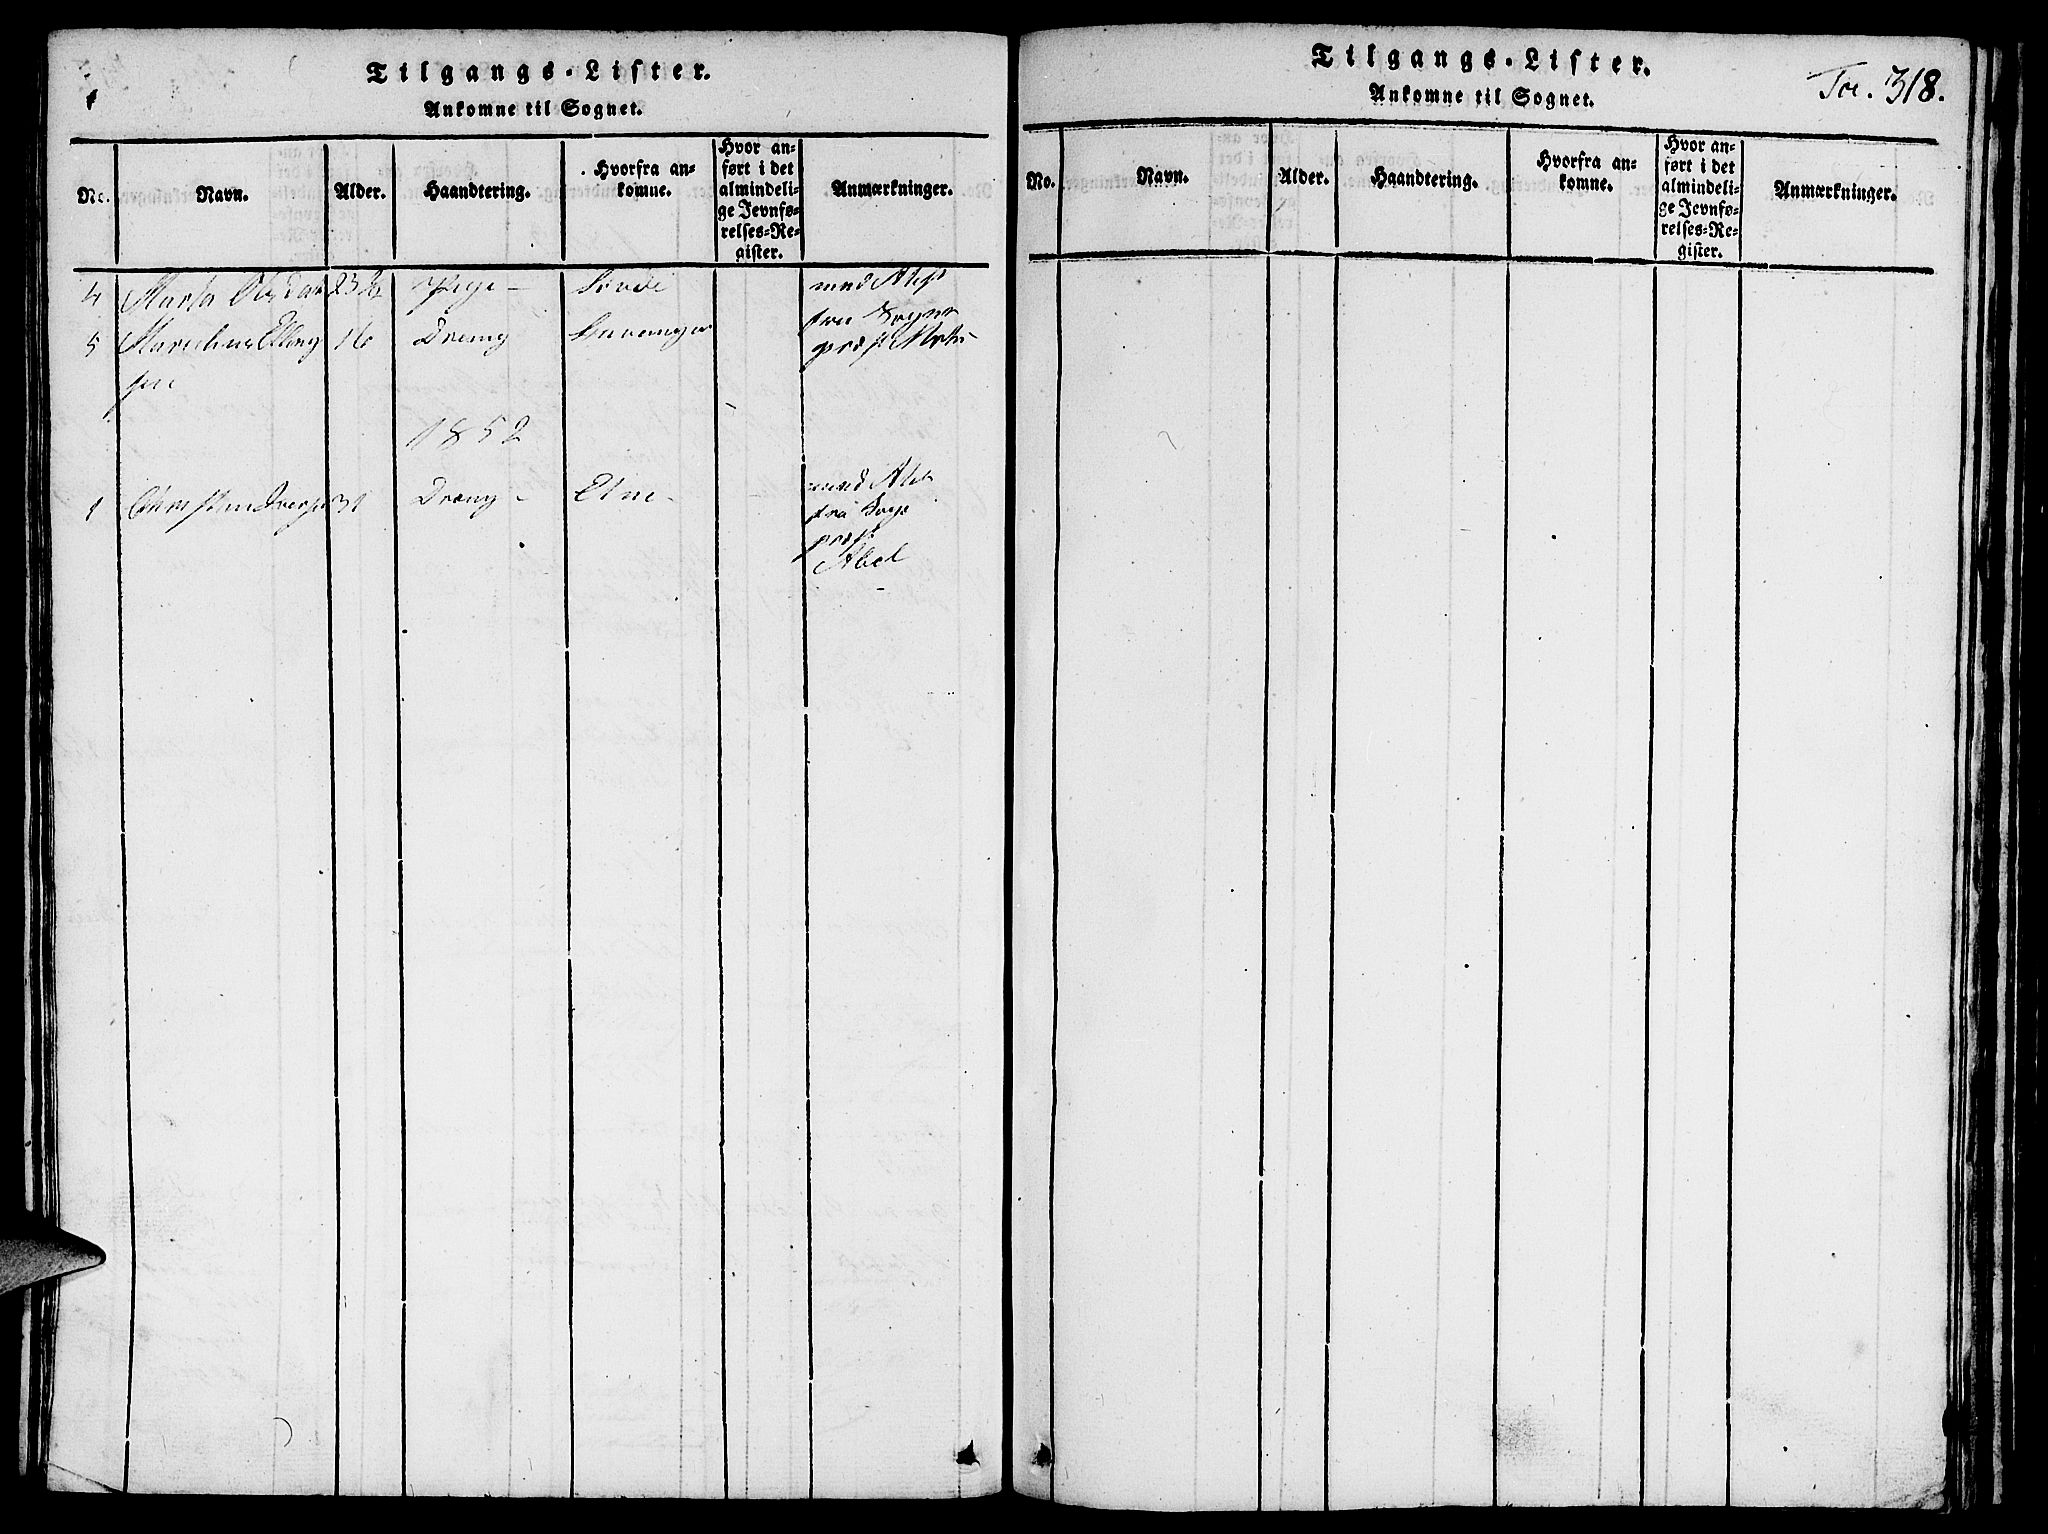 Tilgangs-Lister.
Ankomne til Sognet.
No. Navn. Alder. Haandtering. Hvorfra an-
komne. Hvor an-
ført i det
almindeli-
ge Jevnfø-
relses-Re-
gister. Anmærkninger.
4 Pige - med Atest
fra Sogne
5 16 Dreng præst
sen
1852
1 31 Dreng - Etne - med Att
fra Sogn
præst
Abel
Tilgangs-Lister.
Ankomne til Sognet.
Foe. 318.
No. Navn. Alder. Haandtering. Hvorfra an-
komne. Hvor an-
ført i det
almindeli-
ge Jevnfø-
relses-Re-
gister. Anmærkninger.